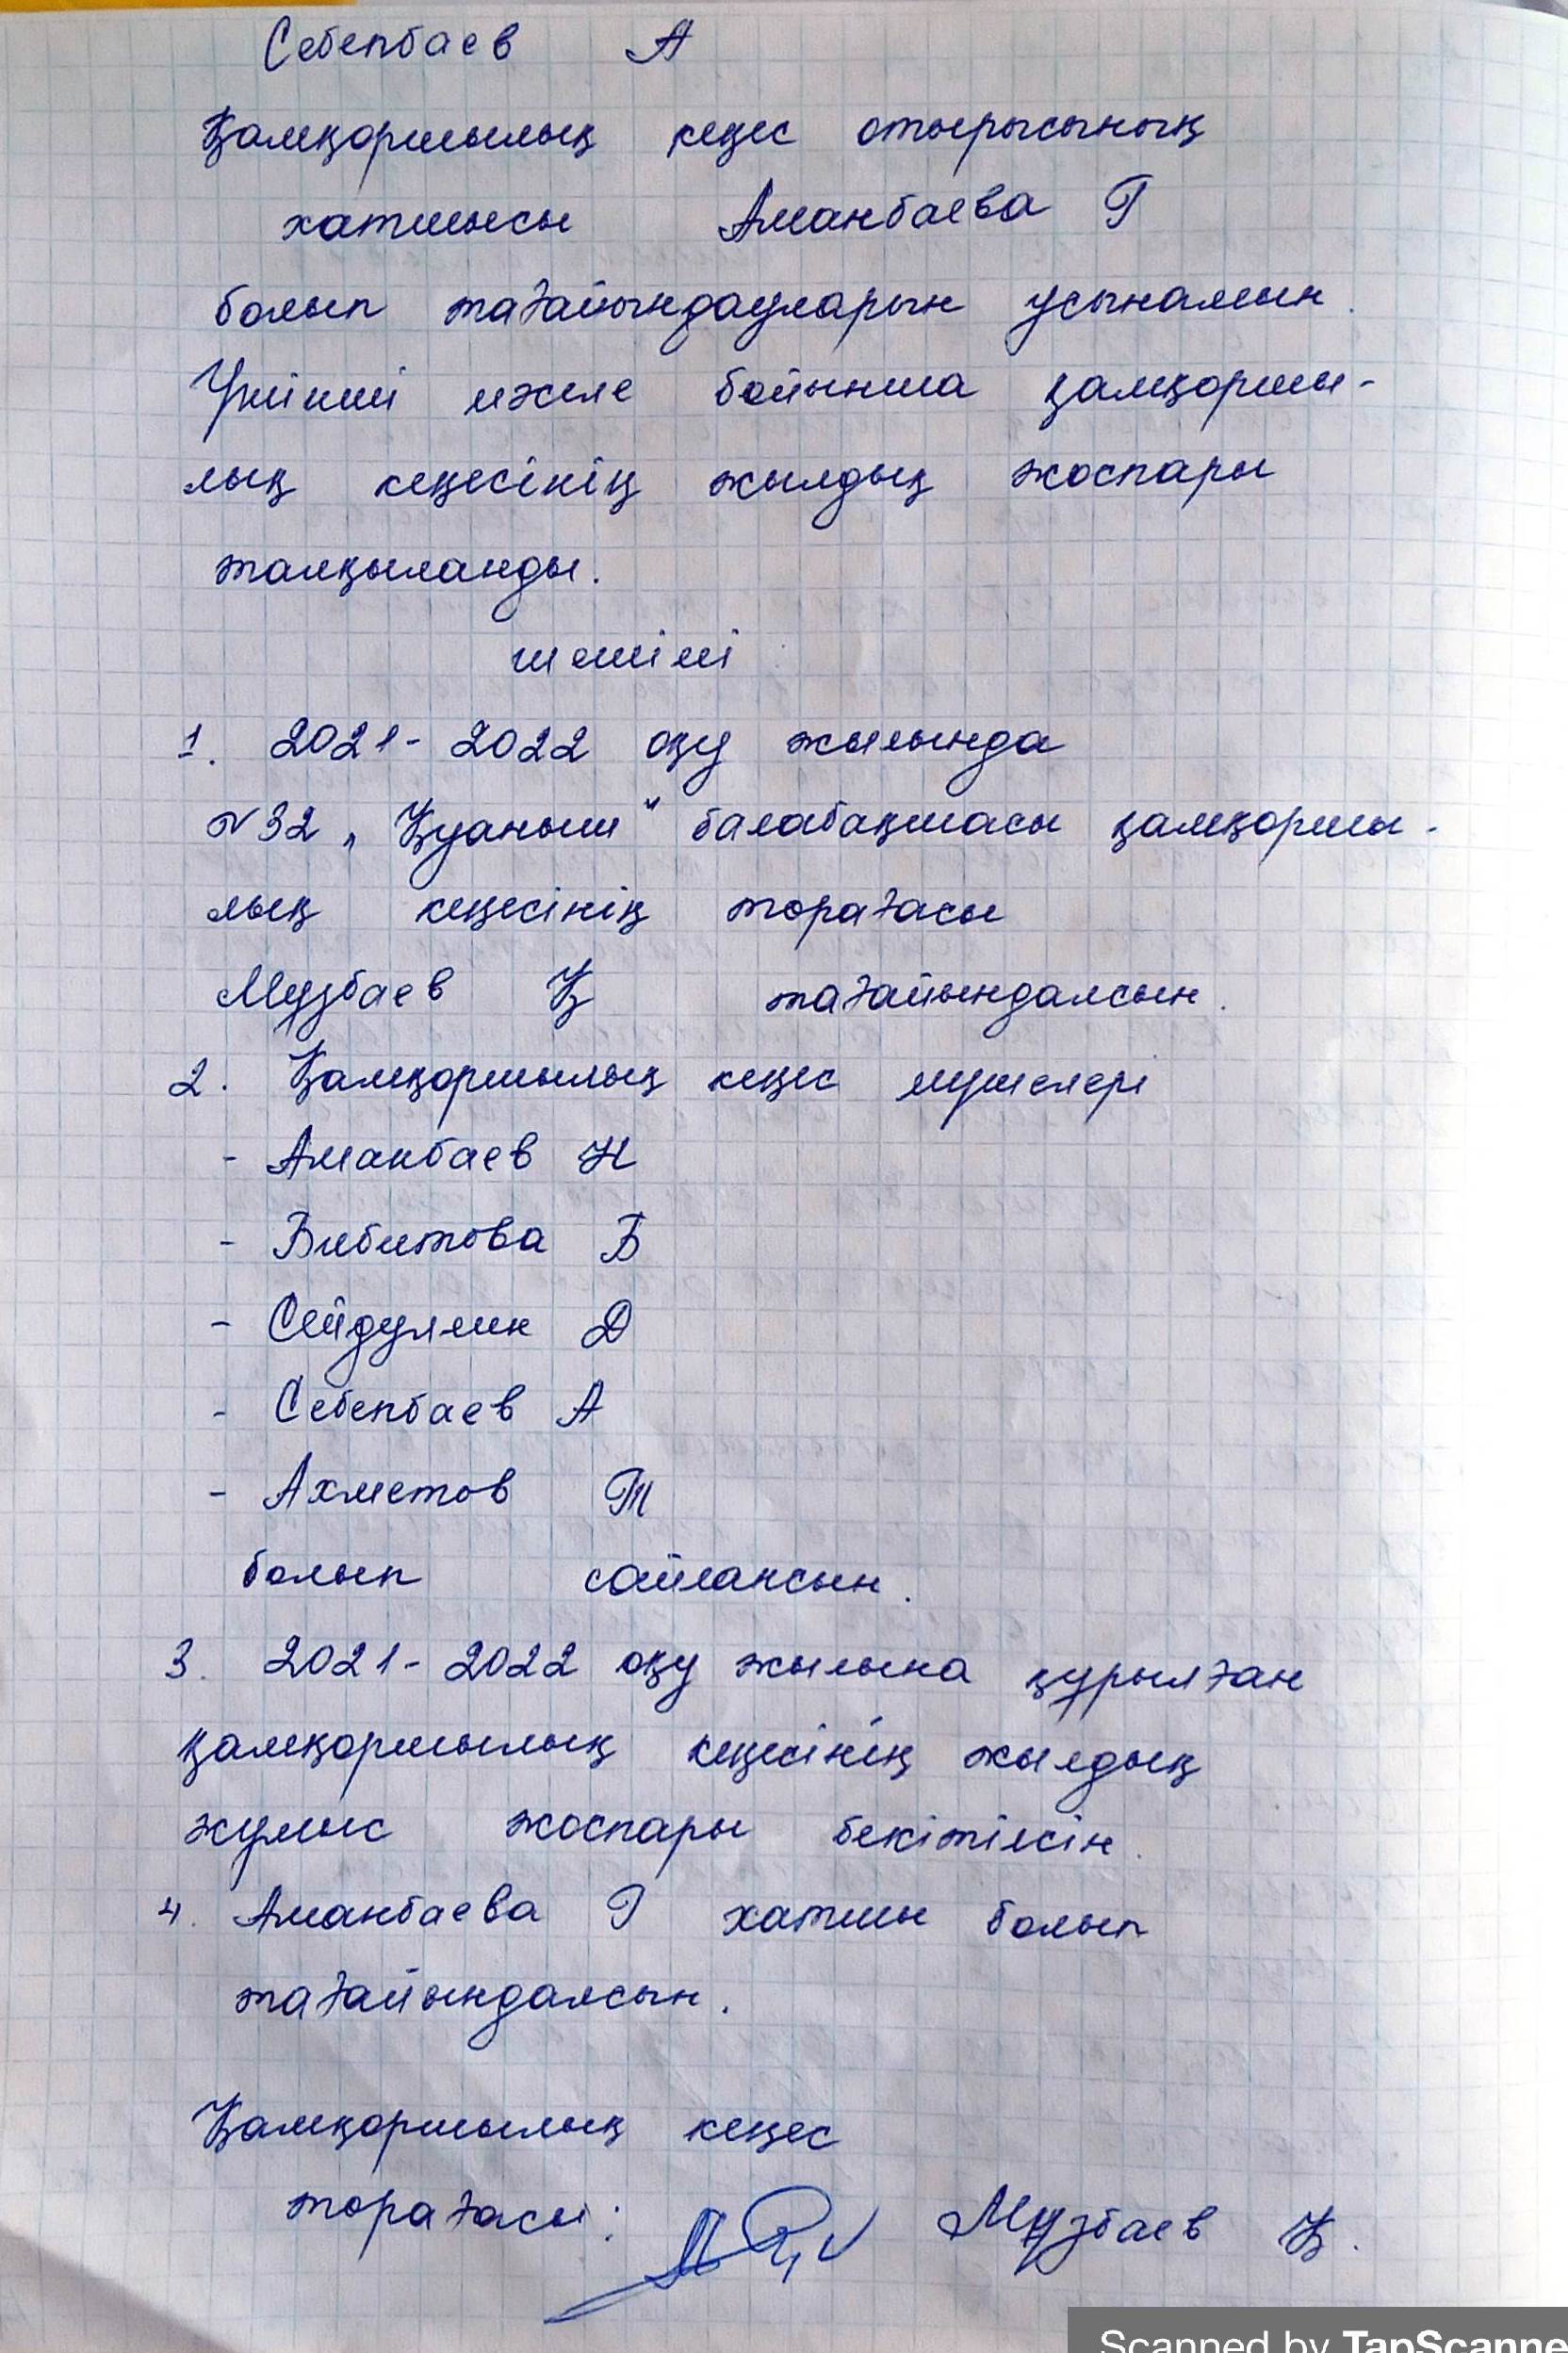 Себепбаев А
Қамқоршылық кеңес отырысының
хатшысы Аманбаева Г
болып тағайындауларын ұсынамын.
Үшінші мәселе бойынша қамқоршы-
лық кеңесінің жылдық жоспары
талқыланды.
шешімі:
1. 2021-2022 оқу жылында
№32 „Қуаныш" балабақшасы қамқоршы-
лық кеңесінің төрағасы
Музбаев Қ тағайындалсын.
2. Қамқоршылық кеңес мүшелері
- Аманбаев Н
- Бибитова Б
- Сейдулин Д
- Себепбаев А
- Ахметов Т
болып сайлансын.
3. 2021-2022 оқу жылына құрылған
қамқоршылық кеңесінің жылдық
жұмыс жоспары бекітілсін.
4. Аманбаева Г хатшы болып
тағайындалсын.
Қамқоршылық кеңес
төрағасы: Музбаев Қ.
Scanned by TapScanne